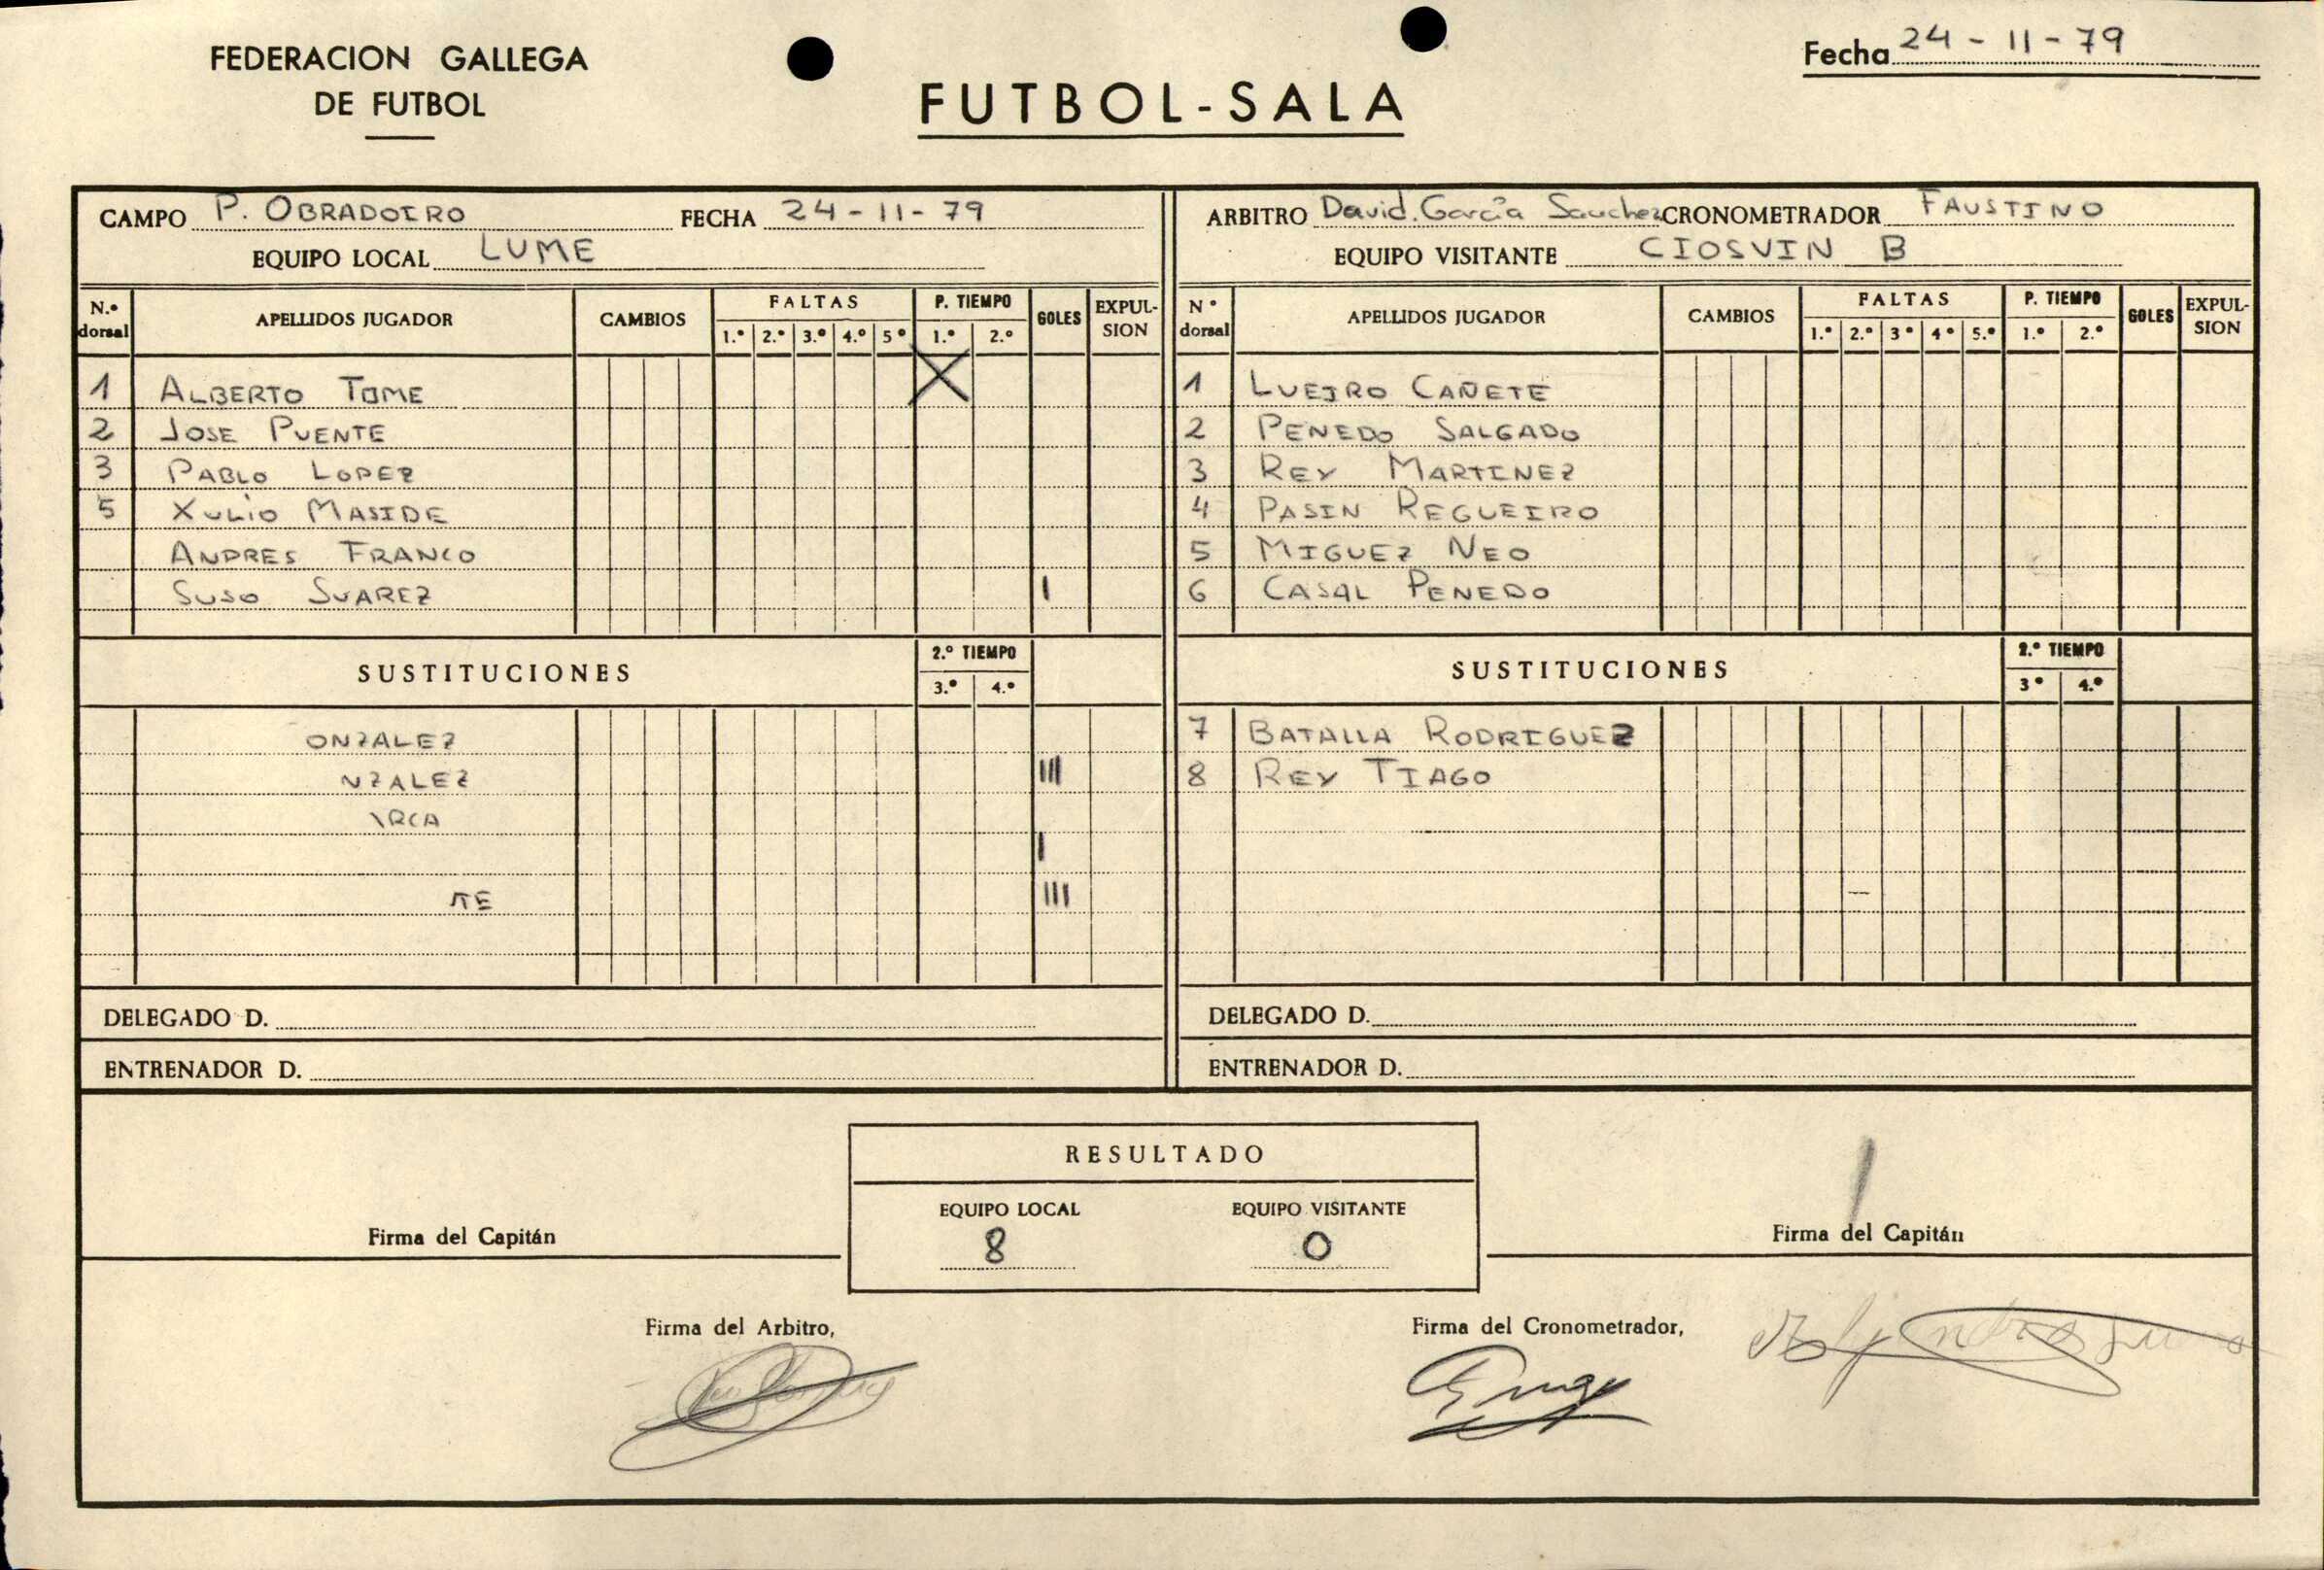 FEDERACION GALLEGA
DE FUTBOL
FUTBOL-SALA
Fecha 24-11-79
CAMPO P. OBRADOIRO FECHA 24-11-79
EQUIPO LOCAL LUME
N.º dorsal APELLIDOS JUGADOR CAMBIOS FALTAS 1.º 2.º 3.º 4.º 5º P. TIEMPO 1.º 2.º GOLES EXPUL-SION
1 ALBERTO TOME X
2 JOSE PUENTE
3 PABLO LOPEZ
5 XULIO MASIDE
ANDRES FRANCO
SUSO SUAREZ I
SUSTITUCIONES 2.º TIEMPO 3.º 4.º
ONZALEZ
NZALEZ III
RCA
I
TE III
DELEGADO D.
ENTRENADOR D.
ARBITRO David. García Sanchez CRONOMETRADOR FAUSTINO
EQUIPO VISITANTE CIOSVIN B
Nº dorsal APELLIDOS JUGADOR CAMBIOS FALTAS 1.º 2.º 3º 4º 5.º P. TIEMPO 1.º 2.º GOLES EXPUL-SION
1 LUEIRO CAÑETE
2 PENEDO SALGADO
3 REY MARTINEZ
4 PASIN REGUEIRO
5 MIGUEZ NEO
6 CASAL PENEDO
SUSTITUCIONES 2.º TIEMPO 3º 4.º
7 BATALLA RODRIGUEZ
8 REY TIAGO
DELEGADO D.
ENTRENADOR D.
RESULTADO
EQUIPO LOCAL EQUIPO VISITANTE
8 0
Firma del Capitán
Firma del Capitán
Firma del Arbitro,
Firma del Cronometrador,